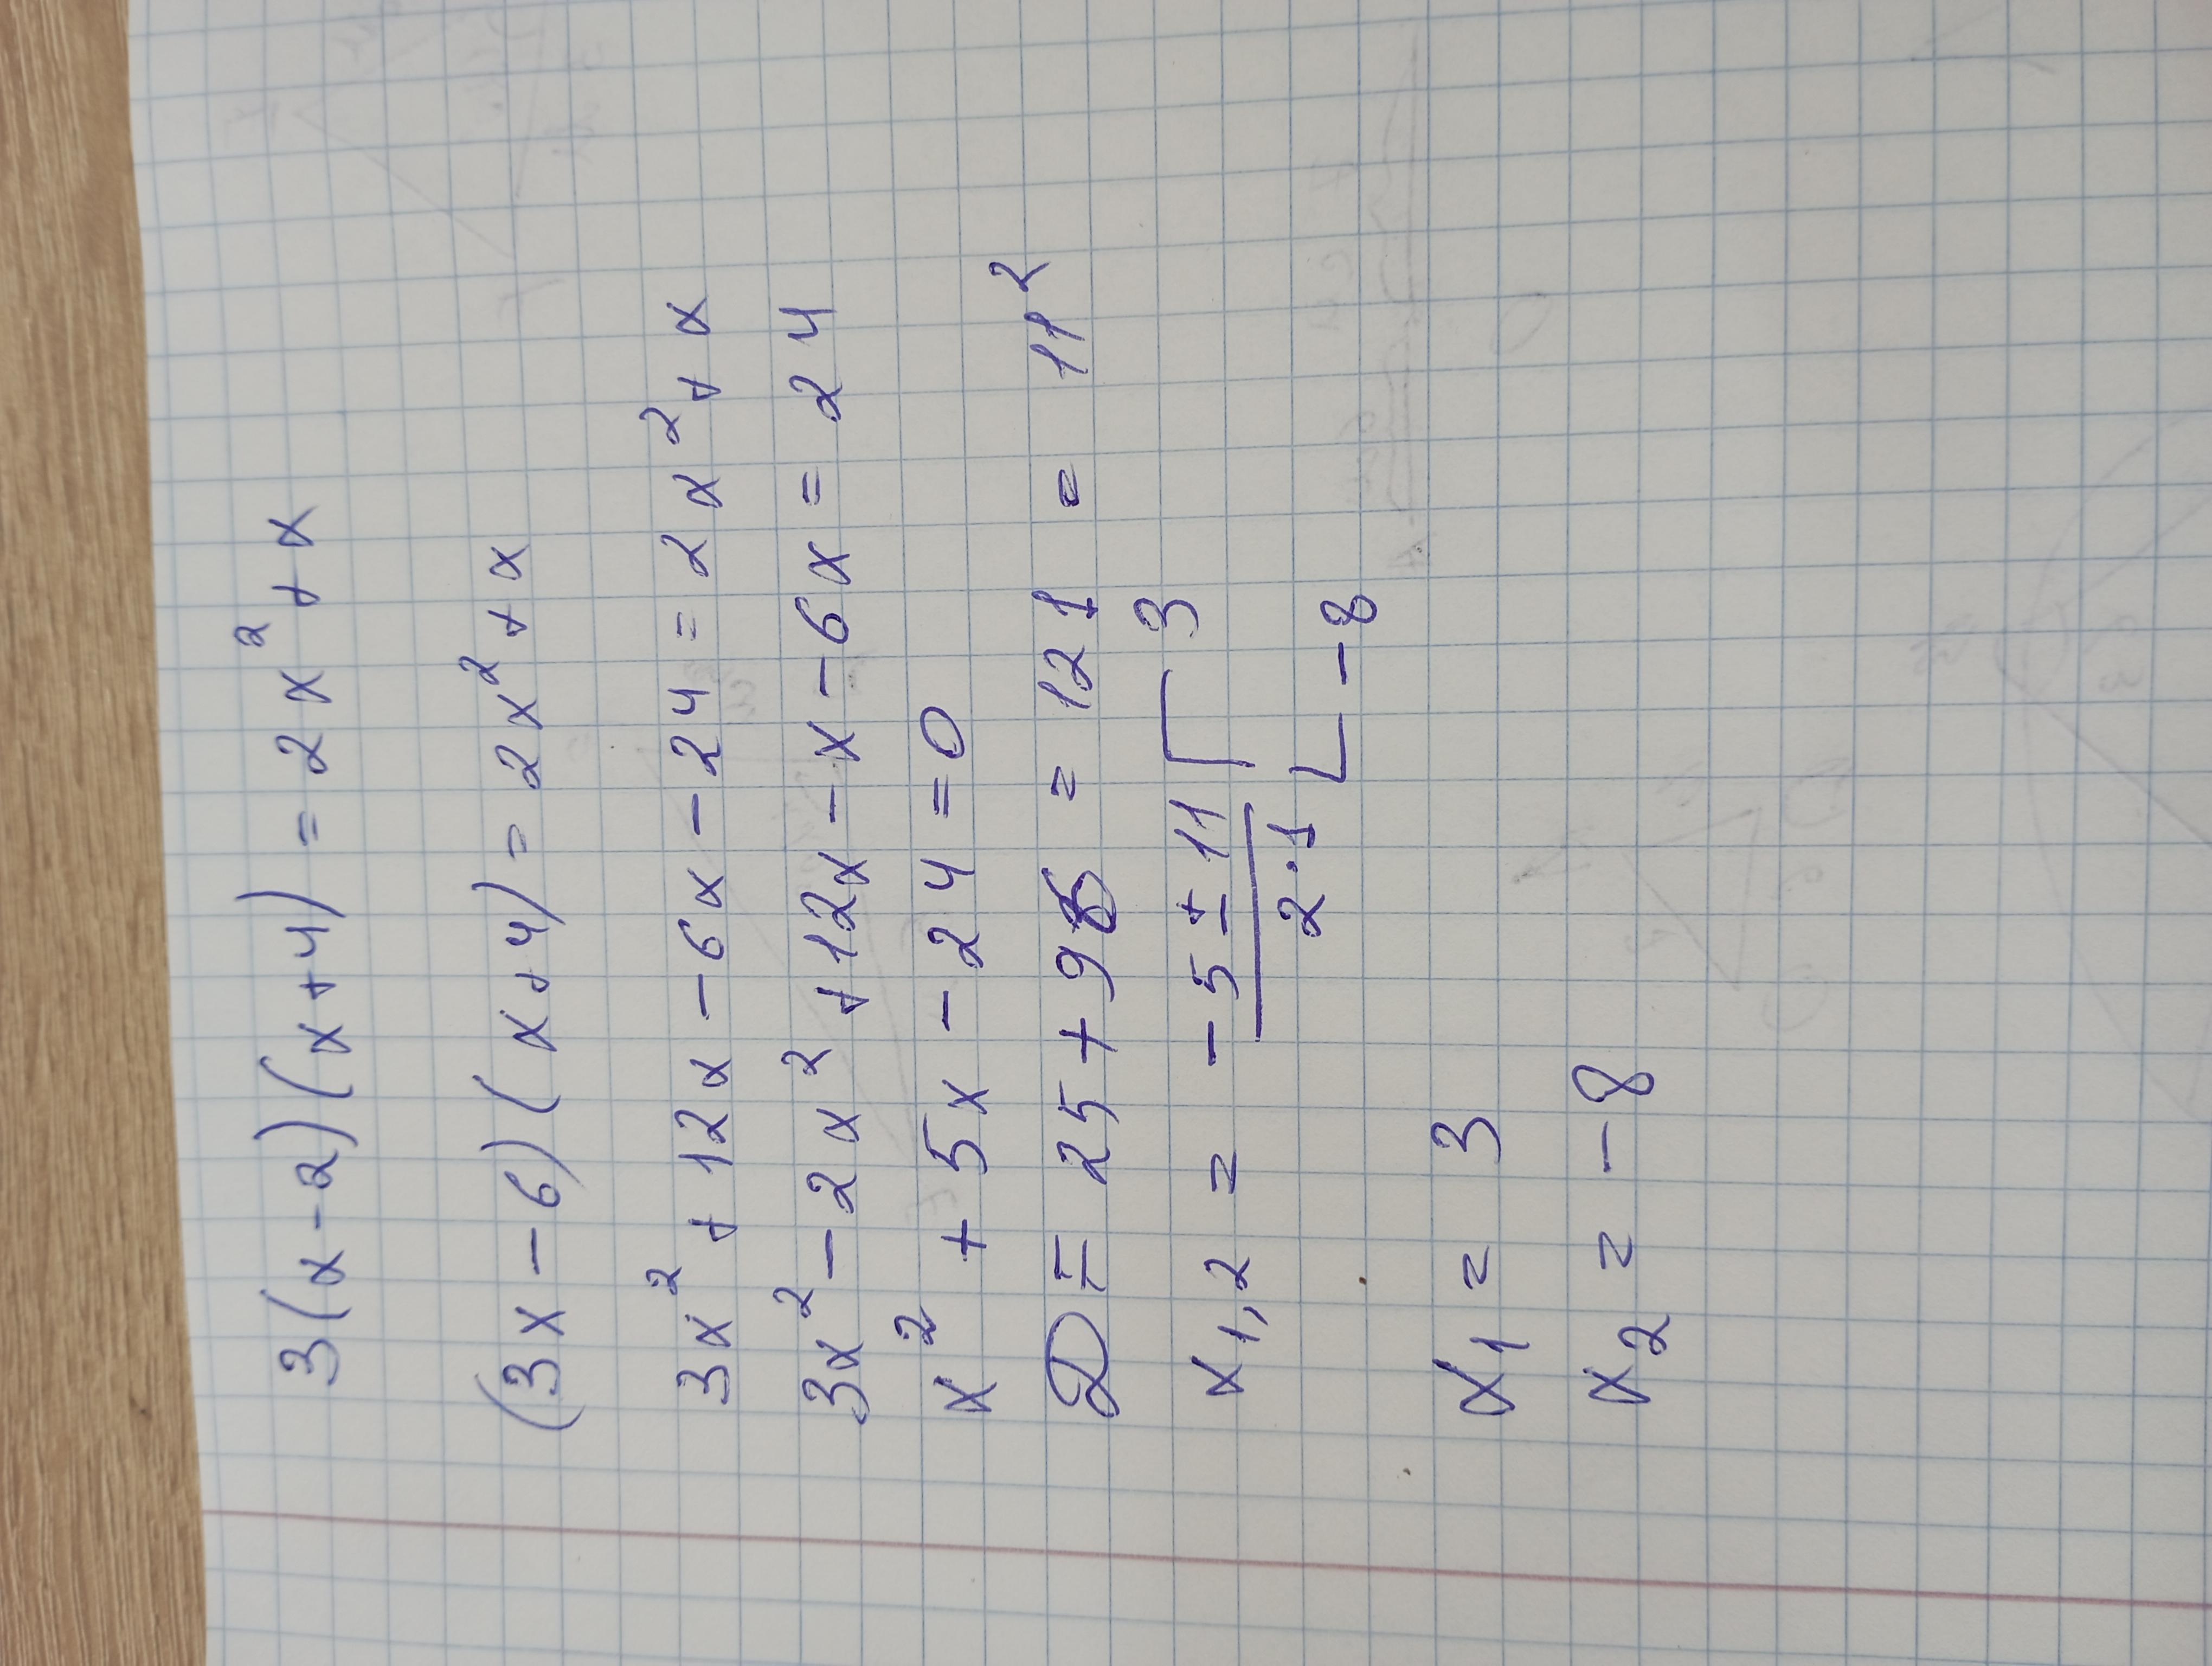 3(x-2)(x+4) = 2x² + x
(3x-6)(x+4) = 2x² + x
3x² + 12x - 6x - 24 = 2x² + x
3x² - 2x² + 12x - x - 6x = 24
x² + 5x - 24 = 0
D = 25 + 96 = 121 = 11²
x₁,₂ = (-5 ± 11)/(2·1) [3
[-8
x₁ = 3
x₂ = -8